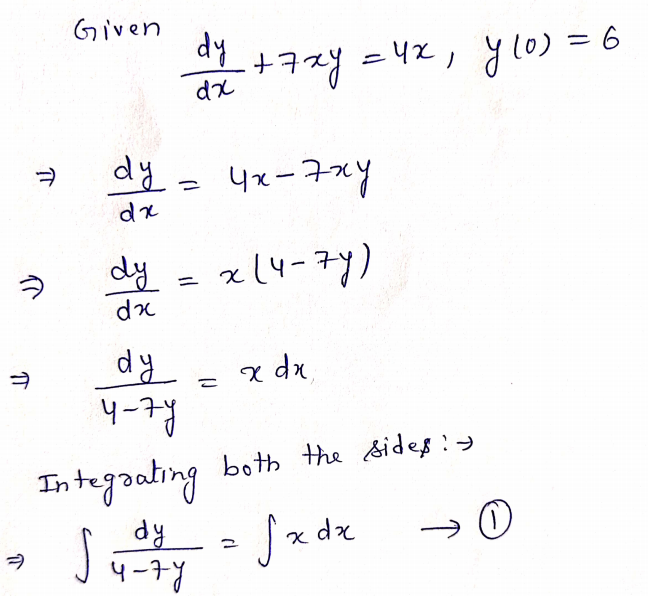 Given
dy/dx + 7xy = 4x, y(0) = 6
⇒ dy/dx = 4x - 7xy
⇒ dy/dx = x(4-7y)
⇒ dy/4-7y = x dx
Integrating both the sides:→
⇒ ∫ dy/4-7y = ∫ x dx → ①